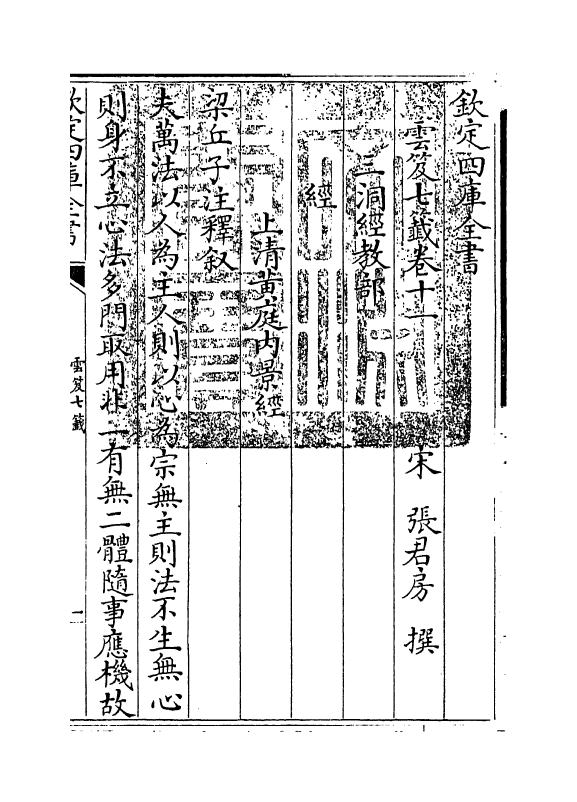 欽定四庫全書
雲笈七籤卷十一
宋 張君房 撰
三洞經教部
經
上清黄庭内景經
梁丘子注釋叙
夫萬法以人為主人則以心為宗無主則法不生無心
則身不立心法多門取用非一有無二體隨事應機故
欽定四庫全書
雲笈七籤